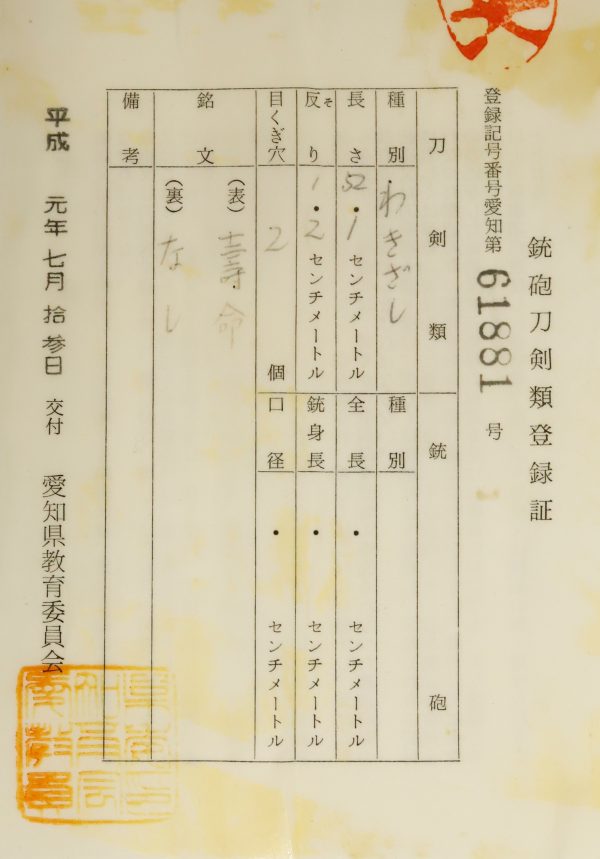 銃砲刀剣類登録証
登録記号番号愛知第 61881 号
刀剣類
銃砲
種別 わきざし
種別
長さ 52・1センチメートル
全長 ・ センチメートル
反り 1・2センチメートル
そ
銃身長 ・ センチメートル
目くぎ穴 2 個
口径 ・ センチメートル
銘文
(表) 壽命
(裏) なし
備考
平成 元年 七月 拾参日 交付 愛知県教育委員会